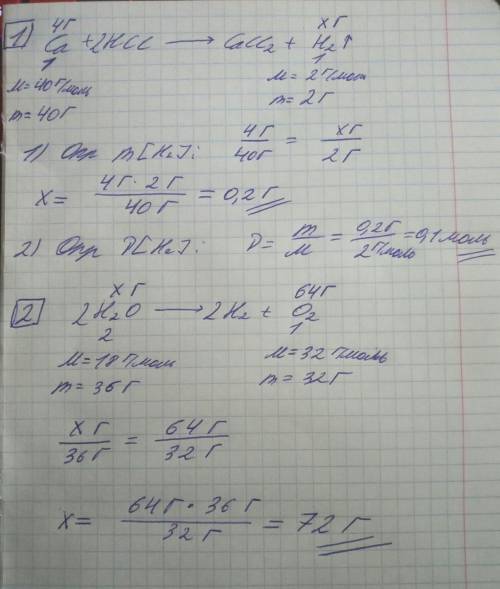 4г хг
1) Ca + 2HCl → CaCl₂ + H₂↑
1 1
M=40г/моль M=2г/моль
m=40г m=2г
1) Опр m[H₂]: 4г/40г = хг/2г
x = 4г·2г/40г = 0,2г
2) Опр ν[H₂]: ν = m/M = 0,2г/2г/моль = 0,1 моль
хг 64г
2 2H₂O → 2H₂ + O₂
2 1
M=18г/моль M=32г/моль
m=36г m=32г
хг/36г = 64г/32г
x = 64г·36г/32г = 72г